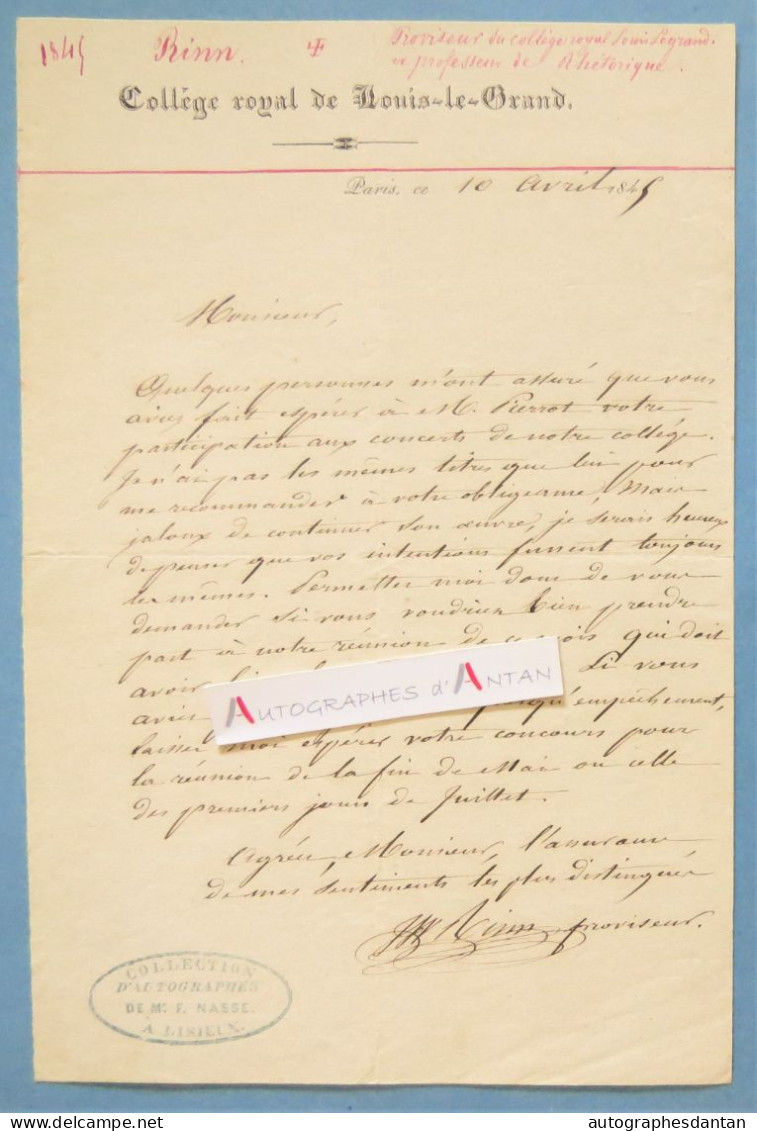 1845 Rinn. Proviseur du collège royal Louis Legrand.
et professeur de Rhétorique.
Collége royal de Louis-le-Grand.
Paris, ce 10 Avril 1845
Monsieur,
Quelques personnes m'ont assuré que vous
aviez fait espérer à M. Pierrot votre
participation aux concerts de notre collége.
Je n'ai pas les mêmes titres que lui pour
me recommander à votre obligeance, Mais
jaloux de continuer son œuvre, je serais heureux
de penser que vos intentions fussent toujours
les mêmes. Permettez moi donc de vous
demander si vous voudriez bien prendre
part à notre réunion de ce mois qui doit
avoir lieu Si vous
aviez quelqu'empêchement,
laissez moi espérer votre concours pour
la réunion de la fin de Mai ou celle
des premiers jours de Juillet.
Agréez, Monsieur, l'assurance
de mes sentiments les plus distingués
Rinn proviseur.
AUTOGRAPHES d'ANTAN
COLLECTION
D'AUTOGRAPHES
DE Mr. F. NASSE.
À LISIEUX.
autographesdantan